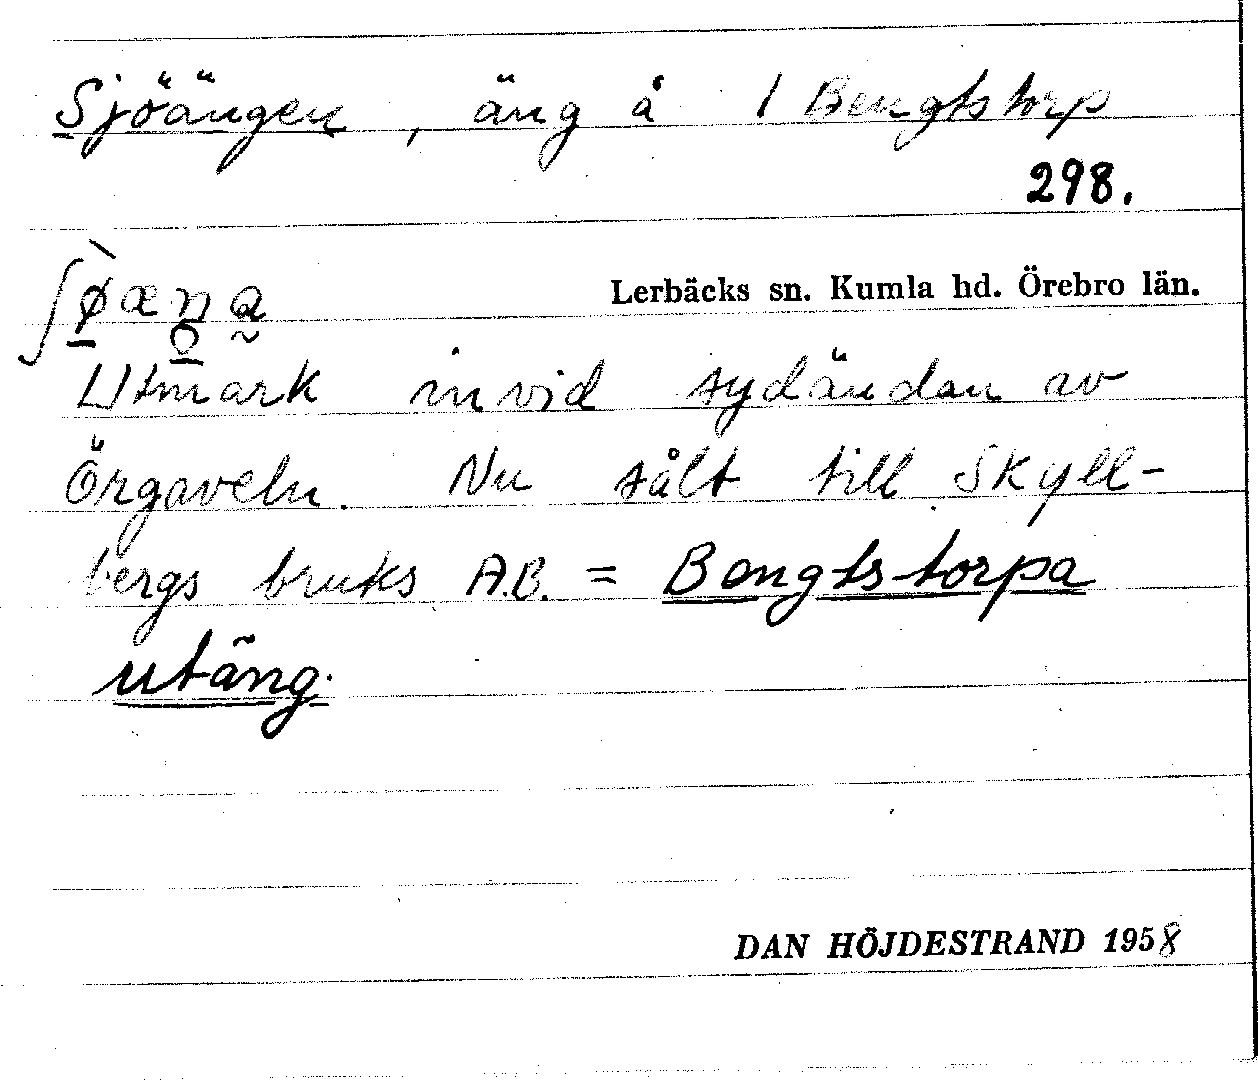 Sjöängen, äng å 1 Bengtstorp
298.
Lerbäcks sn. Kumla hd. Örebro län.
Utmark invid sydändan av
Örgaveln. Nu sålt till Skyll-
bergs bruks A.B. = Bengtstorpa
utäng.
DAN HÖJDESTRAND 1958